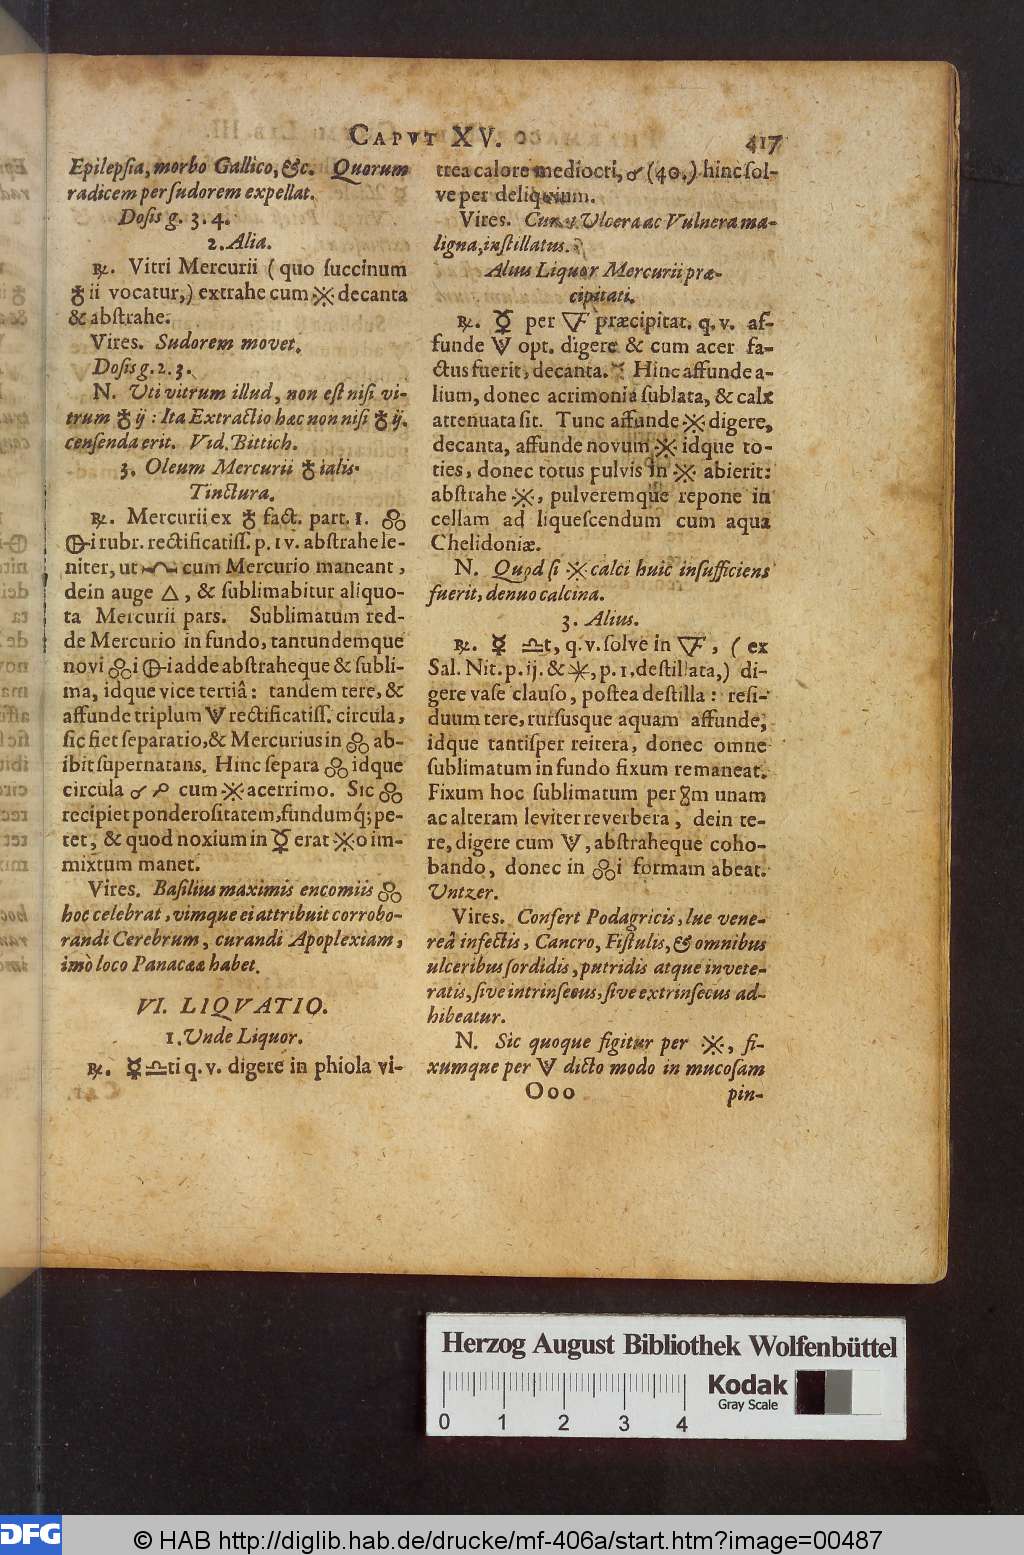 CAPVT XV. 417
Epilepsia, morbo Gallico, &c. Quorum
radicem per sudorem expellat.
Dosis g. 3. 4.
2. Alia.
℞. Vitri Mercurii (quo succinum
♁ii vocatur,) extrahe cum ※ decanta
& abstrahe.
Vires. Sudorem movet.
Dosis g. 2. 3.
N. Uti vitrum illud, non est nisi vi-
trum ♁ ij : Ita Extractio hæc non nisi ♁ ij.
censenda erit. Vid. Bittich.
3. Oleum Mercurii ♁ialis.
Tinctura.
℞. Mercurii ex ♁ fact. part. 1.
i rubr. rectificatiss. p. iv. abstrahe le-
niter, ut cum Mercurio maneant,
dein auge △, & sublimabitur aliquo-
ta Mercurii pars. Sublimatum red-
de Mercurio in fundo, tantundemque
novi i i adde abstraheque & subli-
ma, idque vice tertiâ: tandem tere, &
affunde triplum rectificatiss. circula,
sic fiet separatio, & Mercurius in ab-
ibit supernatans. Hinc separa idque
circula ♂ cum ※ acerrimo. Sic
recipiet ponderositatem, fundumq́; pe-
tet, & quod noxium in ☿ erat ※o im-
mixtum manet.
Vires. Basilius maximis encomiis
hoc celebrat, vimque ei attribuit corrobo-
randi Cerebrum, curandi Apoplexiam,
imò loco Panacææ habet.
VI. LIQVATIO.
1. Unde Liquor.
℞. ☿ ♎ti q. v. digere in phiola vi-
trea calore mediocri, ♂ (40.) hinc sol-
ve per deliquium.
Vires. Ulcera ac Vulnera ma-
ligna, instillatus.
Alius Liquor Mercurii præ-
cipitati.
℞. ☿ per præcipitat. q. v. af-
funde opt. digere & cum acer fa-
ctus fuerit, decanta. Hinc affunde a-
lium, donec acrimonia sublata, & calx
attenuata sit. Tunc affunde ※ digere,
decanta, affunde novum ※ idque to-
ties, donec totus pulvis in ※ abierit:
abstrahe ※, pulveremque repone in
cellam ad liquescendum cum aqua
Chelidoniæ.
N. Quod si ※ calci huic insufficiens
fuerit, denuo calcina.
3. Alius.
℞. ☿ ♎t, q. v. solve in , (ex
Sal. Nit. p. ij. & ✳, p. 1, destillata,) di-
gere vase clauso, postea destilla: resi-
duum tere, rursusque aquam affunde,
idque tantisper reitera, donec omne
sublimatum in fundo fixum remaneat.
Fixum hoc sublimatum per m unam
ac alteram leviter reverbera, dein te-
re, digere cum , abstraheque coho-
bando, donec in i formam abeat.
Untzer.
Vires. Confert Podagricis, lue vene-
reâ infectis, Cancro, Fistulis, & omnibus
ulceribus sordidis, putridis atque invete-
ratis, sive intrinsecus, sive extrinsecus ad-
hibeatur.
N. Sic quoque figitur per ※, fi-
xumque per dicto modo in mucosam
Ooo pin-
Herzog August Bibliothek Wolfenbüttel
Kodak
Gray Scale
0 1 2 3 4
DFG
© HAB http://diglib.hab.de/drucke/mf-406a/start.htm?image=00487